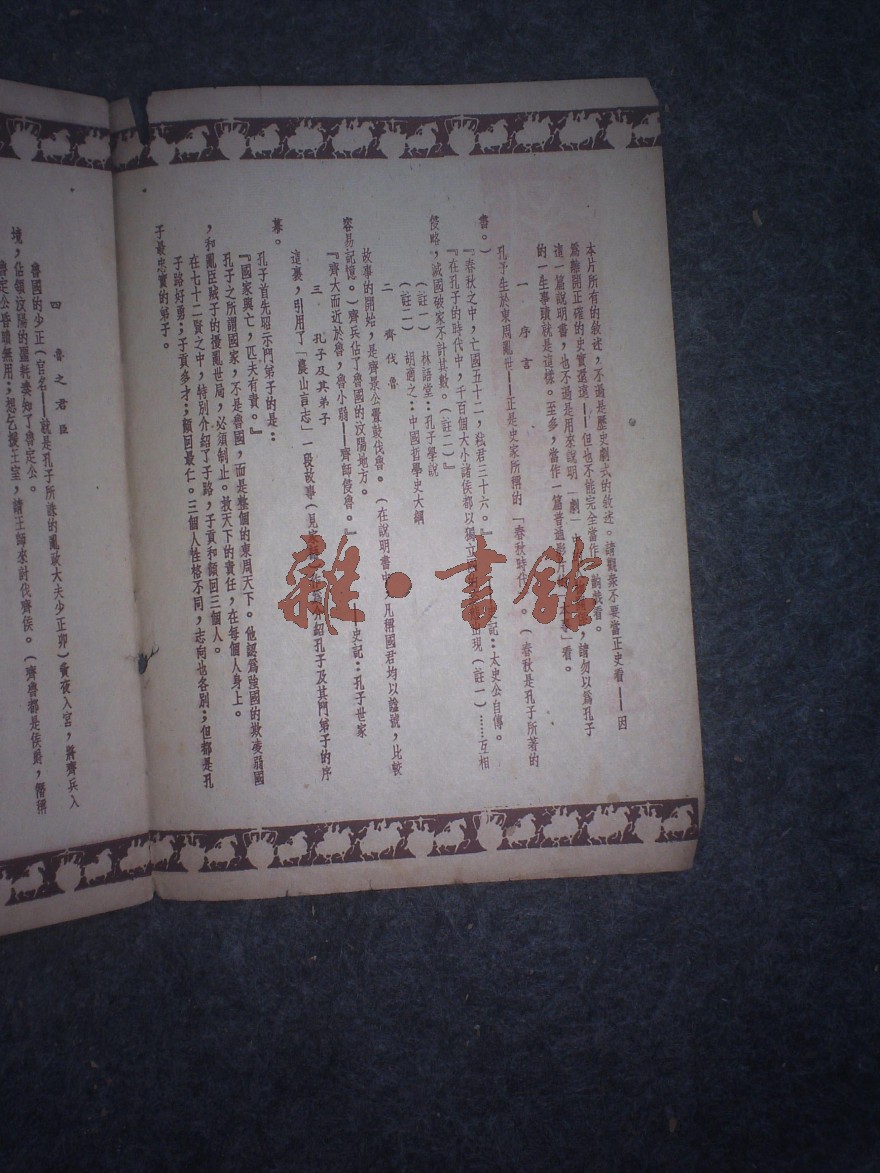 本片所有的敘述，不過是歷史劇式的敘述。請觀衆不要當正史看——因
爲離開正確的史實還遠——但也不能完全當作
看。
這一篇說明書，也不過是用來說明「劇」中
，請勿以爲孔子
的一生事蹟就是這樣。至多，當作一篇普通影片
看。
一 序言
孔子生於東周亂世——正是史家所稱的「春秋時代
。（春秋是孔子所著的
書。）
『春秋之中，亡國五十二，弒君三十六。』
史記：太史公自傳。
『在孔子的時代中，千百個大小諸侯都以獨立
出現（註一）……互相
侵略，滅國破家不計其數。（註二）』
（註一） 林語堂：孔子學說
（註二） 胡適之：中國哲學史大綱
二 齊伐魯
故事的開始，是齊景公疊鼓伐魯。（在說明書中
凡稱國君均以諡號，比較
容易記憶。）齊兵佔了魯國的汶陽地方。
『齊大而近於魯，魯小弱——齊師侵魯。』
史記：孔子世家
三 孔子及其弟子
這裏，引用了「農山言志」一段故事（見
介紹孔子及其門弟子的序
幕。
孔子首先昭示門弟子的是：
『國家興亡，匹夫有責。』
孔子之所謂國家，不是魯國，而是整個的東周天下。他認爲強國的欺凌弱國
，和亂臣賊子的擾亂世局，必須制止。救天下的責任，在每個人身上。
在七十二賢之中，特別介紹了子路，子貢和顏回三個人。
子路好勇；子貢多才；顏回最仁。三個人性格不同，志向也各別；但都是孔
子最忠實的弟子。
四 魯之君臣
魯國的少正（官名——就是孔子所誅的亂政大夫少正卯）黃夜入宮，將齊兵入
境，佔領汶陽的噩耗奏知了魯定公。
魯定公昏聵無用；想乞援王室，請王師來討伐齊侯。（齊魯都是侯爵，僭稱
雜·書館